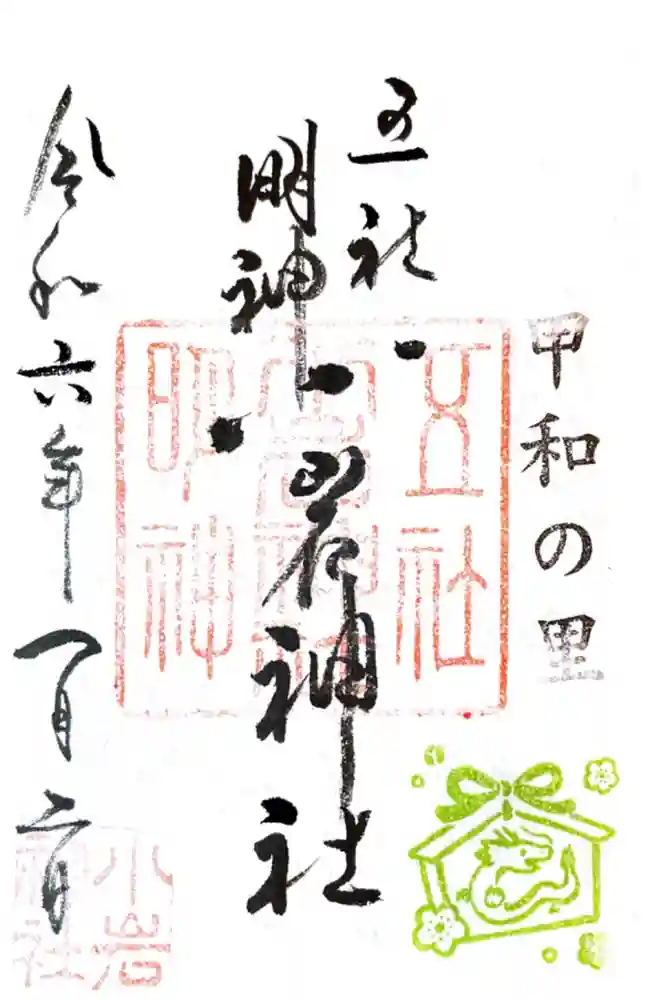 甲和の里
五社
明神
小岩神社
令和六年一月二日
五社
明神
小岩
神社